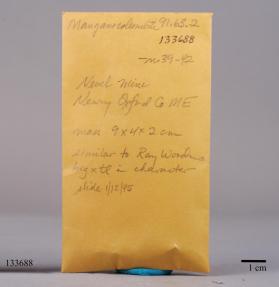 Manganocolumbite 91.63.2
133688
m39-92
Newry Oxford Co ME
max 9 x 4 x 2 cm
similar to Ray Woodman
big xtl in character
slide 1/12/95
133688
1 cm